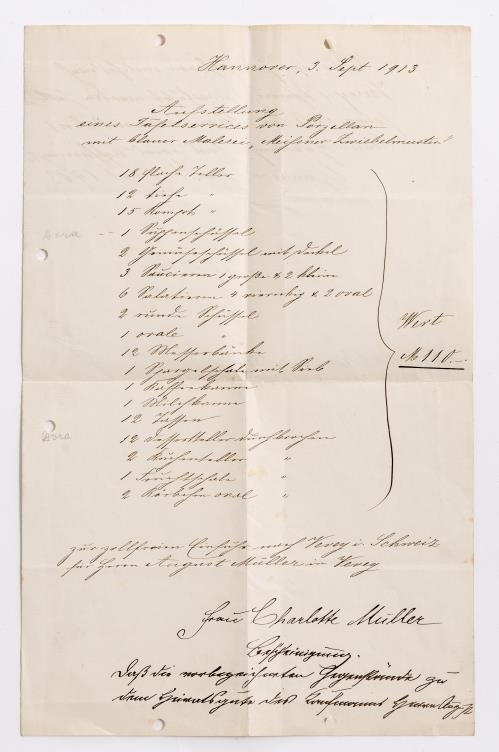 Hannover, 3. Sept 1913
Aufstellung
eines Tafelservices von Porzellan
mit blauer Malerei, Meißner Zwiebelmuster
18 flache Teller
12 tiefe "
15 Kompt. "
Dora -- 1 Suppenschüssel
2 Gemüseschüssel mit Deckel
3 Saucieren 1 große & 2 kleine
6 Salatieren 4 viereckig & 2 oval
2 runde Schüssel
1 ovale "
12 Messerbänke
1 Spargelschale mit Sieb
1 Kaffeekanne
1 Milchkanne
12 Tassen
Dora
12 Dessertteller durchbrochen
2 Kuchenteller "
1 Fruchtschale "
2 Körbchen oval "
Wert
M 110.-
zur zollfreien Einfuhr nach Vevey i. Schweiz
für Herrn August Müller in Vevey
Frau Charlotte Müller
Bescheinigung.
Daß die vorbezeichneten Gegenstände zu
dem Heiratsgute des Kaufmanns Herrn August